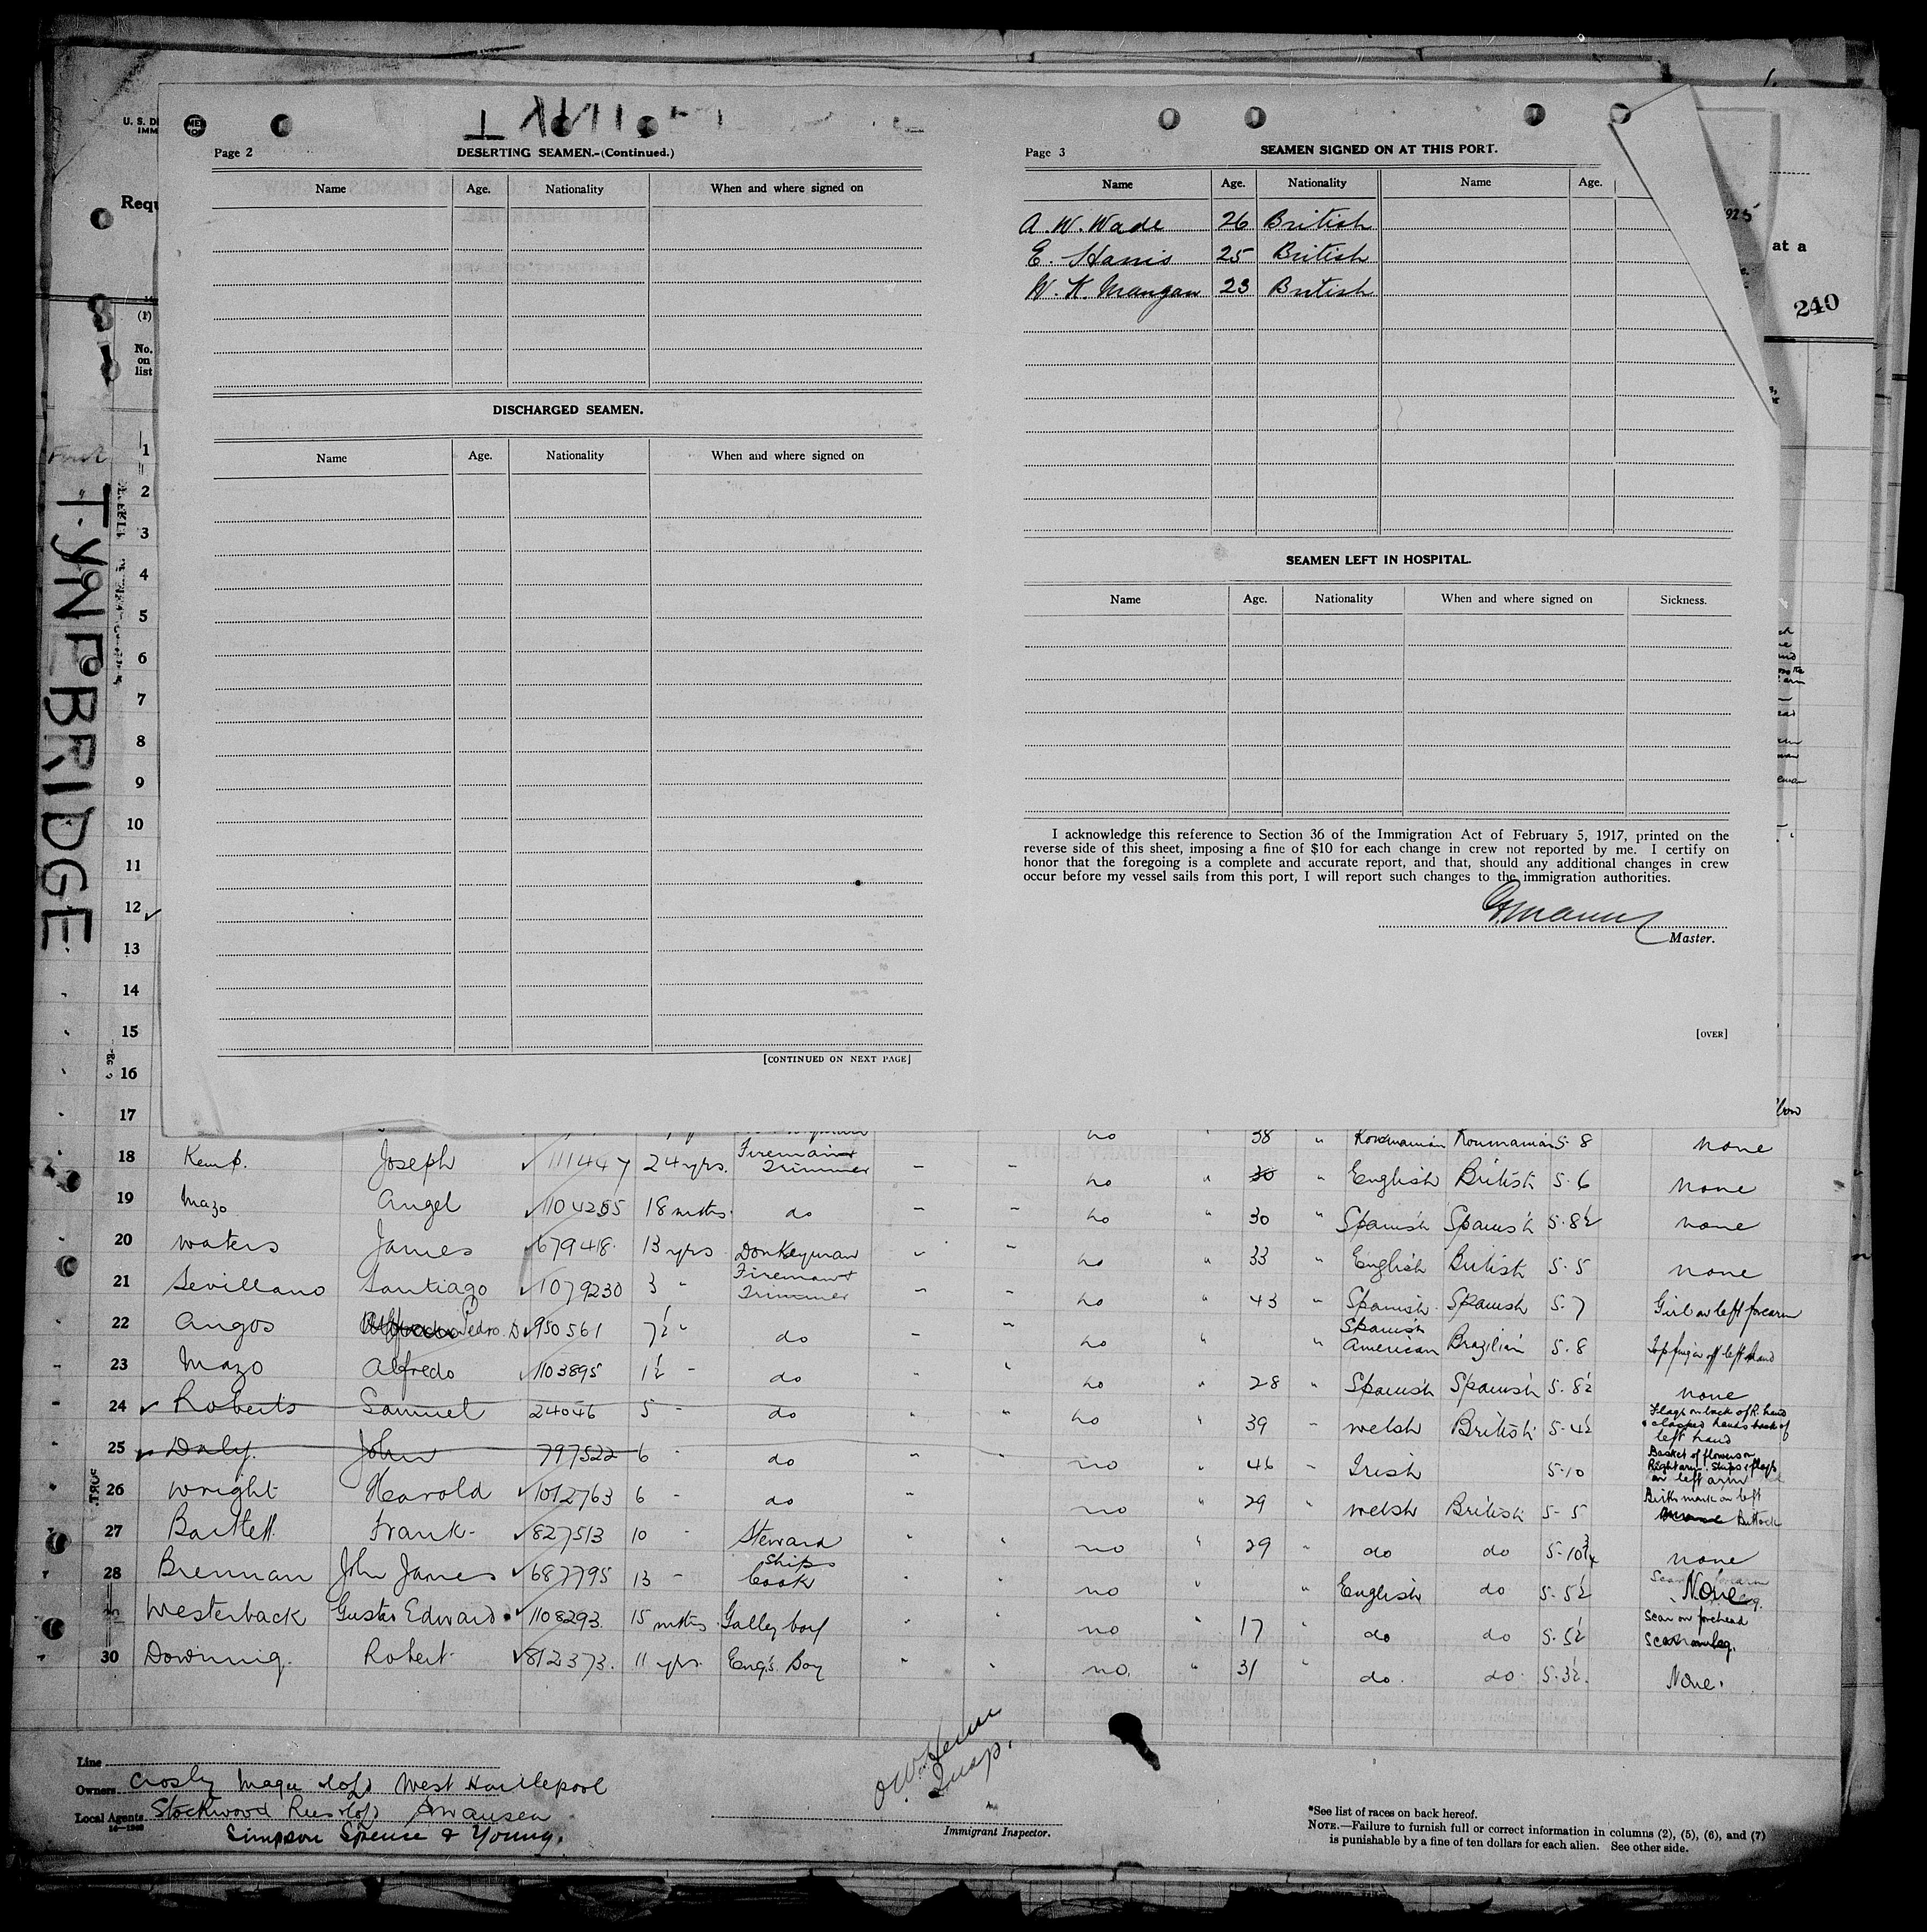 U. S. DE
IMM
Requ
Page 2
DESERTING SEAMEN.-(Continued.)
Name Age. Nationality When and where signed on
DISCHARGED SEAMEN.
Name Age. Nationality When and where signed on
[CONTINUED ON NEXT PAGE]
Page 3
SEAMEN SIGNED ON AT THIS PORT.
Name Age. Nationality Name Age.
A. W. Wade 26 British
E. Harris 25 British
W. K. Mangan 23 British
SEAMEN LEFT IN HOSPITAL.
Name Age. Nationality When and where signed on Sickness.
I acknowledge this reference to Section 36 of the Immigration Act of February 5, 1917, printed on the
reverse side of this sheet, imposing a fine of $10 for each change in crew not reported by me. I certify on
honor that the foregoing is a complete and accurate report, and that, should any additional changes in crew
occur before my vessel sails from this port, I will report such changes to the immigration authorities.
Master.
[OVER]
at a
240
TYNEBRIDGE
(1)
No.
on
list
1
2
3
4
5
6
7
8
9
10
11
12
13
14
15
16
17
no 38 " Roumanian Roumanian 5-8 none
18 Kemp. Joseph 111447 24 yrs. Fireman & Trimmer - - no " 30 " English British 5-6 none
19 Mazo Angel 1104255 18 mths. do - - no " 30 " Spanish Spanish 5-8½ none
20 Waters James 679418 13 yrs Donkeyman - - no " 33 " English British 5-5 none
21 Sevillano Santiago 1079230 3 " Fireman & Trimmer - - no " 43 " Spanish Spanish 5-7 Girl on left forearm
22 Angos Pedro. D 950561 7½ " do - - no " " Spanish American Brazilian 5-8 Top finger off left hand
23 Mazo Alfredo 1103895 1½ - do no " 28 " Spanish Spanish 5-8½ none
24 Roberts Samuel 24046 5 - do no " 39 - Welsh British 5-4½ Flags on back of R. hand & clasped hands back of left hand
25 Daly. John 797522 6 - do no " 46 - Irish 5-10 Basket of flowers on Right arm. Ships & flags on left arm
26 Wright Harold 1012763 6 - do no " 29 " Welsh British 5-5 Birth mark on left Buttock
27 Bartlett Frank 827513 10 - Steward no " 29 " do do 5-10¾ none
28 Brennan John James 687795 13 - Ships Cook no " " English do 5-5½ None
Westerback Gustav Edward 1108293 15 mths Galley boy no " 17 " do do 5-5½ Scar on forehead
30 Downing. Robert 812373. 11 yrs. Eng's Boy no. " 31 " do. do. 5-3½. None.
Line
Owners Crosby Magee & Co Ltd West Hartlepool
Local Agents Stockwood Rees & Co Ltd Swansea
Simpson Spence & Young.
Insp.
Immigrant Inspector.
*See list of races on back hereof.
NOTE.—Failure to furnish full or correct information in columns (2), (5), (6), and (7)
is punishable by a fine of ten dollars for each alien. See other side.